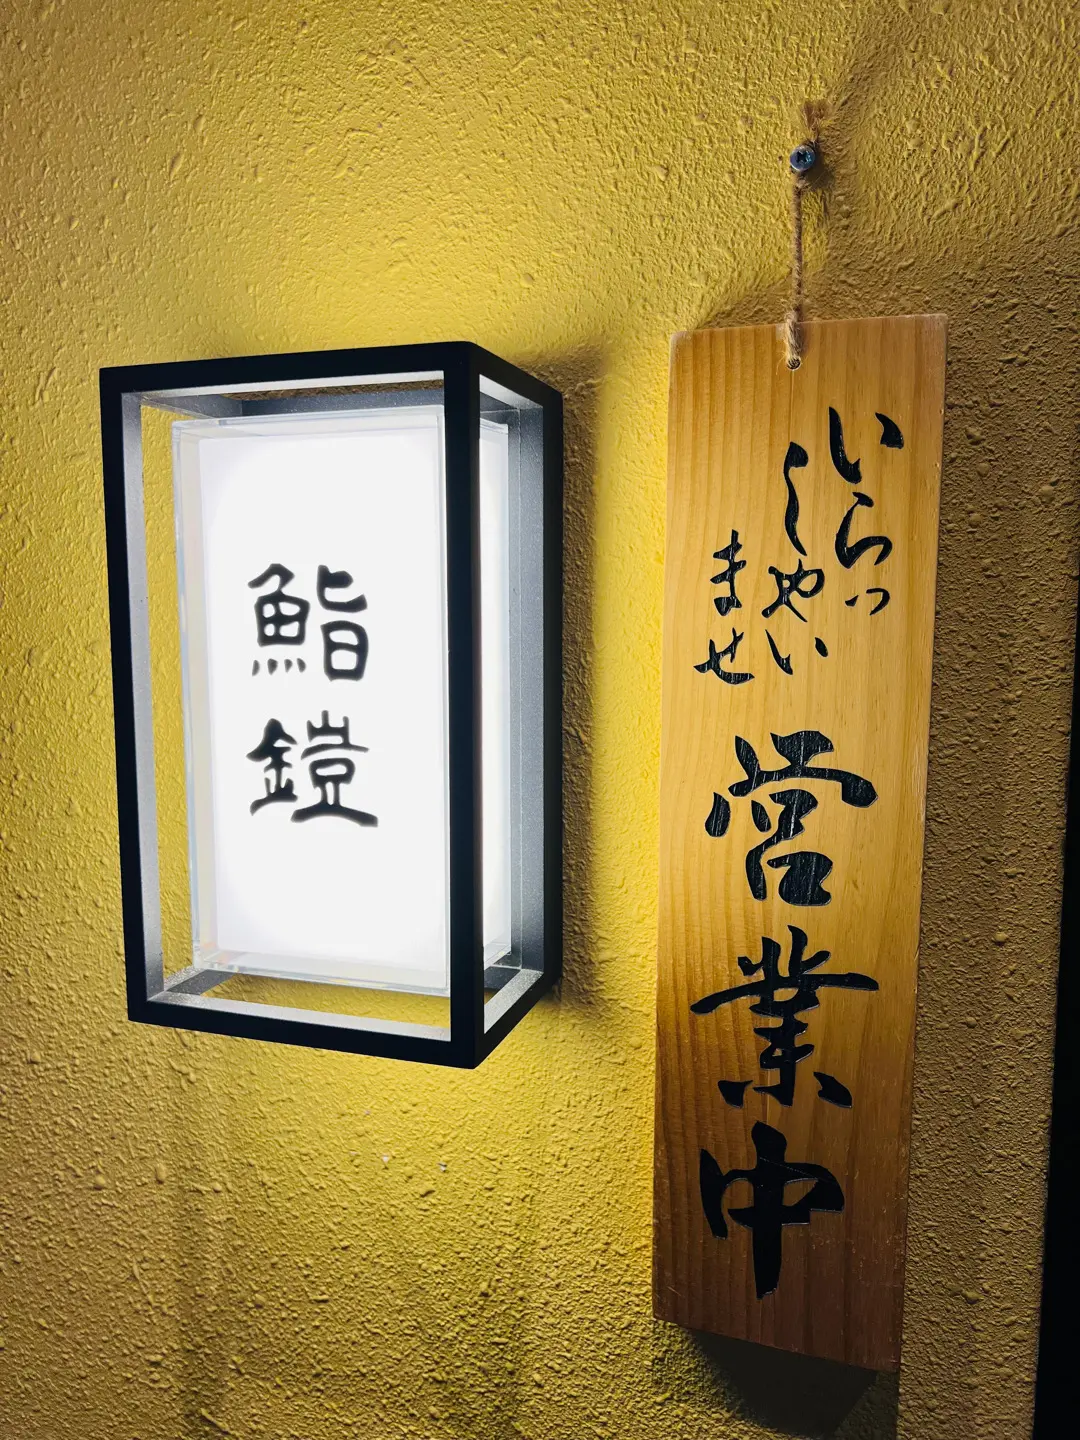 鮨
鎧
いらっ
しゃい
ませ
営業中